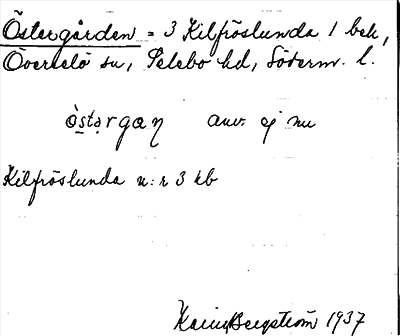 Östergården = 3 Kilfröslunda 1 bek,
Överselö sn, Selebo hd, Söderm. l.
ö̀stərgaɳ anv. ej nu
Kilfröslunda n:r 3 kb
Karin Bergström 1937